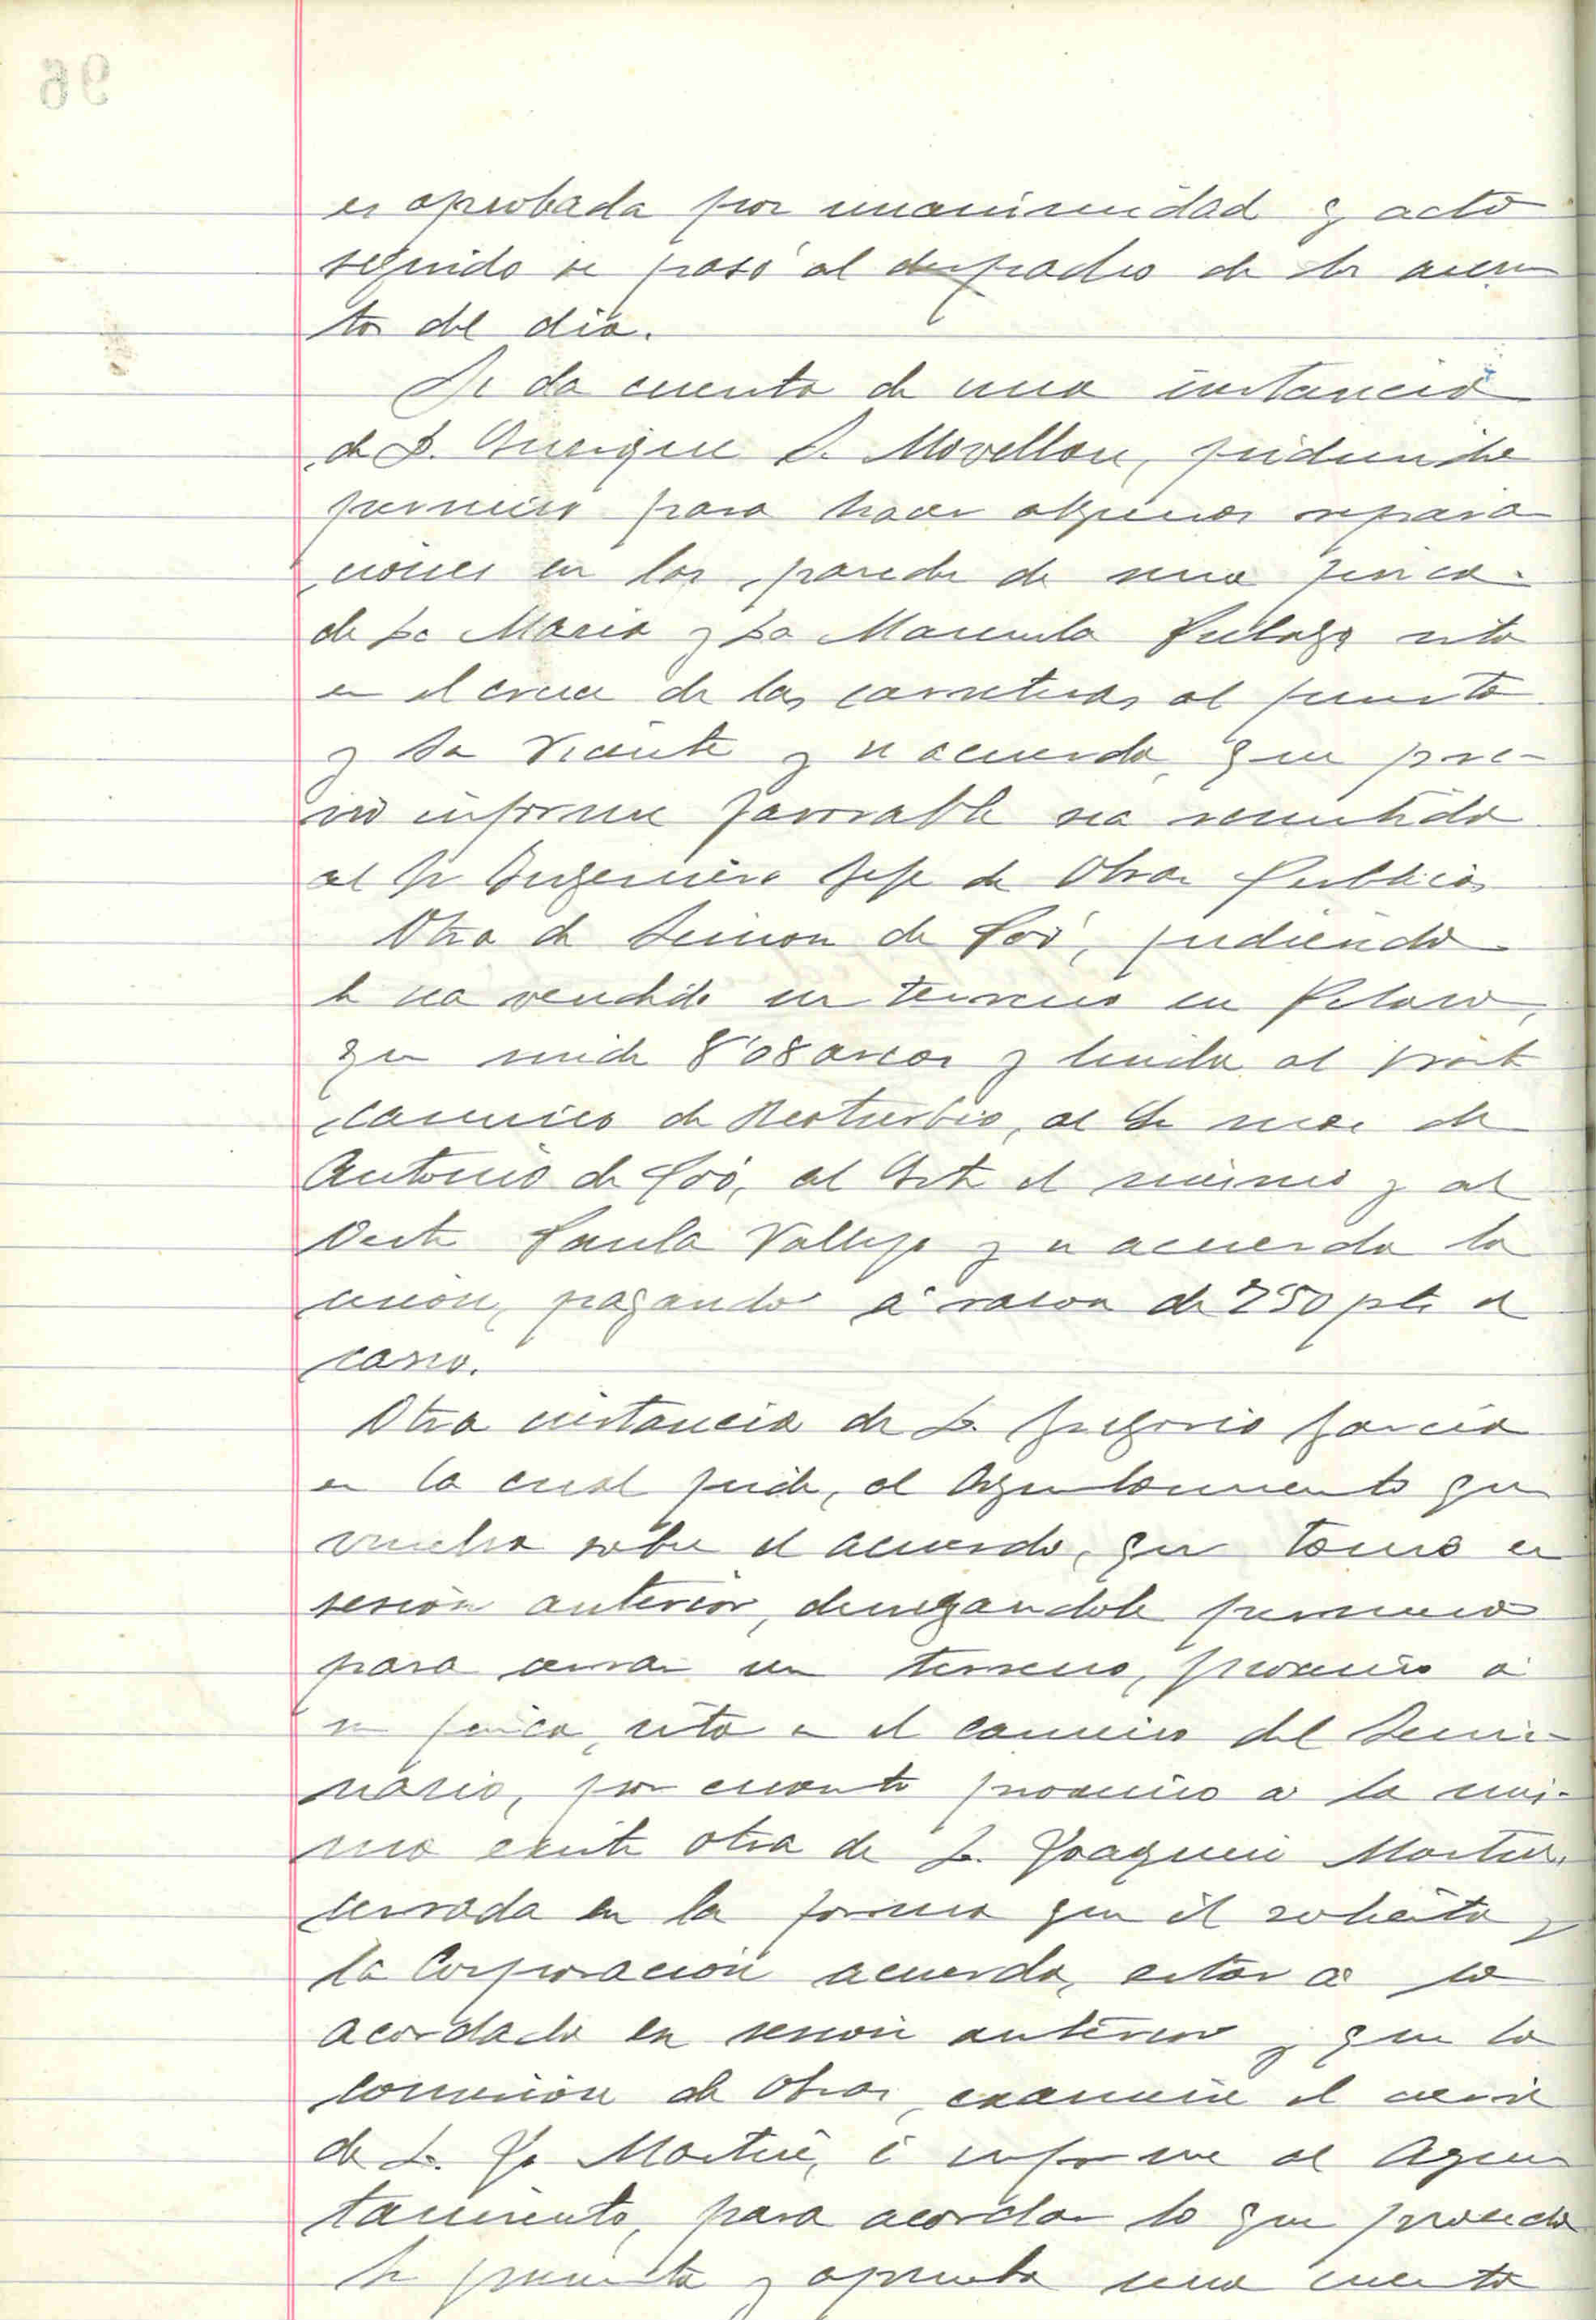 96
es aprobada por unanimidad y acto
seguido se pasó al despacho de los asun
tos del dia.
Se da cuenta de una instancia
de D. Enrique S. Movellan, pidiendo
permiso para hacer algunas repara
ciones en las paredes de una finca
de Da Maria y Da Manuela sita
en el cruce de las carreteras al puerto
y Sn Vicente y se acuerda, que pre-
vio informe favorable sea remitida
al Sr Ingeniero Jefe de Obras Publicas
Otra de Simon de Poó, pidiendo
le sea vendido un terreno en
que mide 8'08 areas y linda al Norte
camino de al Sur mas de
Antonio de Poó, al Este el mismo y al
Oeste Paula Vallejo y se acuerda la
cesion, pagando á razon de 250 pts el
carro.
Otra instancia de D. Gregorio Garcia
en la cual pide, al Ayuntamiento que
vuelva sobre el acuerdo, que tomó en
sesion anterior, denegandole permiso
para cerrar un terreno, proximo á
su finca, sita en el camino del Semi-
nario, por cuanto proximo a la mis-
ma existe otra de D. Joaquin Martin,
cerrada en la forma que el solicita y
la Corporacion acuerda, estar a lo
acordado en sesion anterior y que la
comision de Obras, examine el cierre
de D. Jn Martin, é informe al Ayun
tamiento, para acordar lo que proceda
Se presenta y aprueba una cuenta